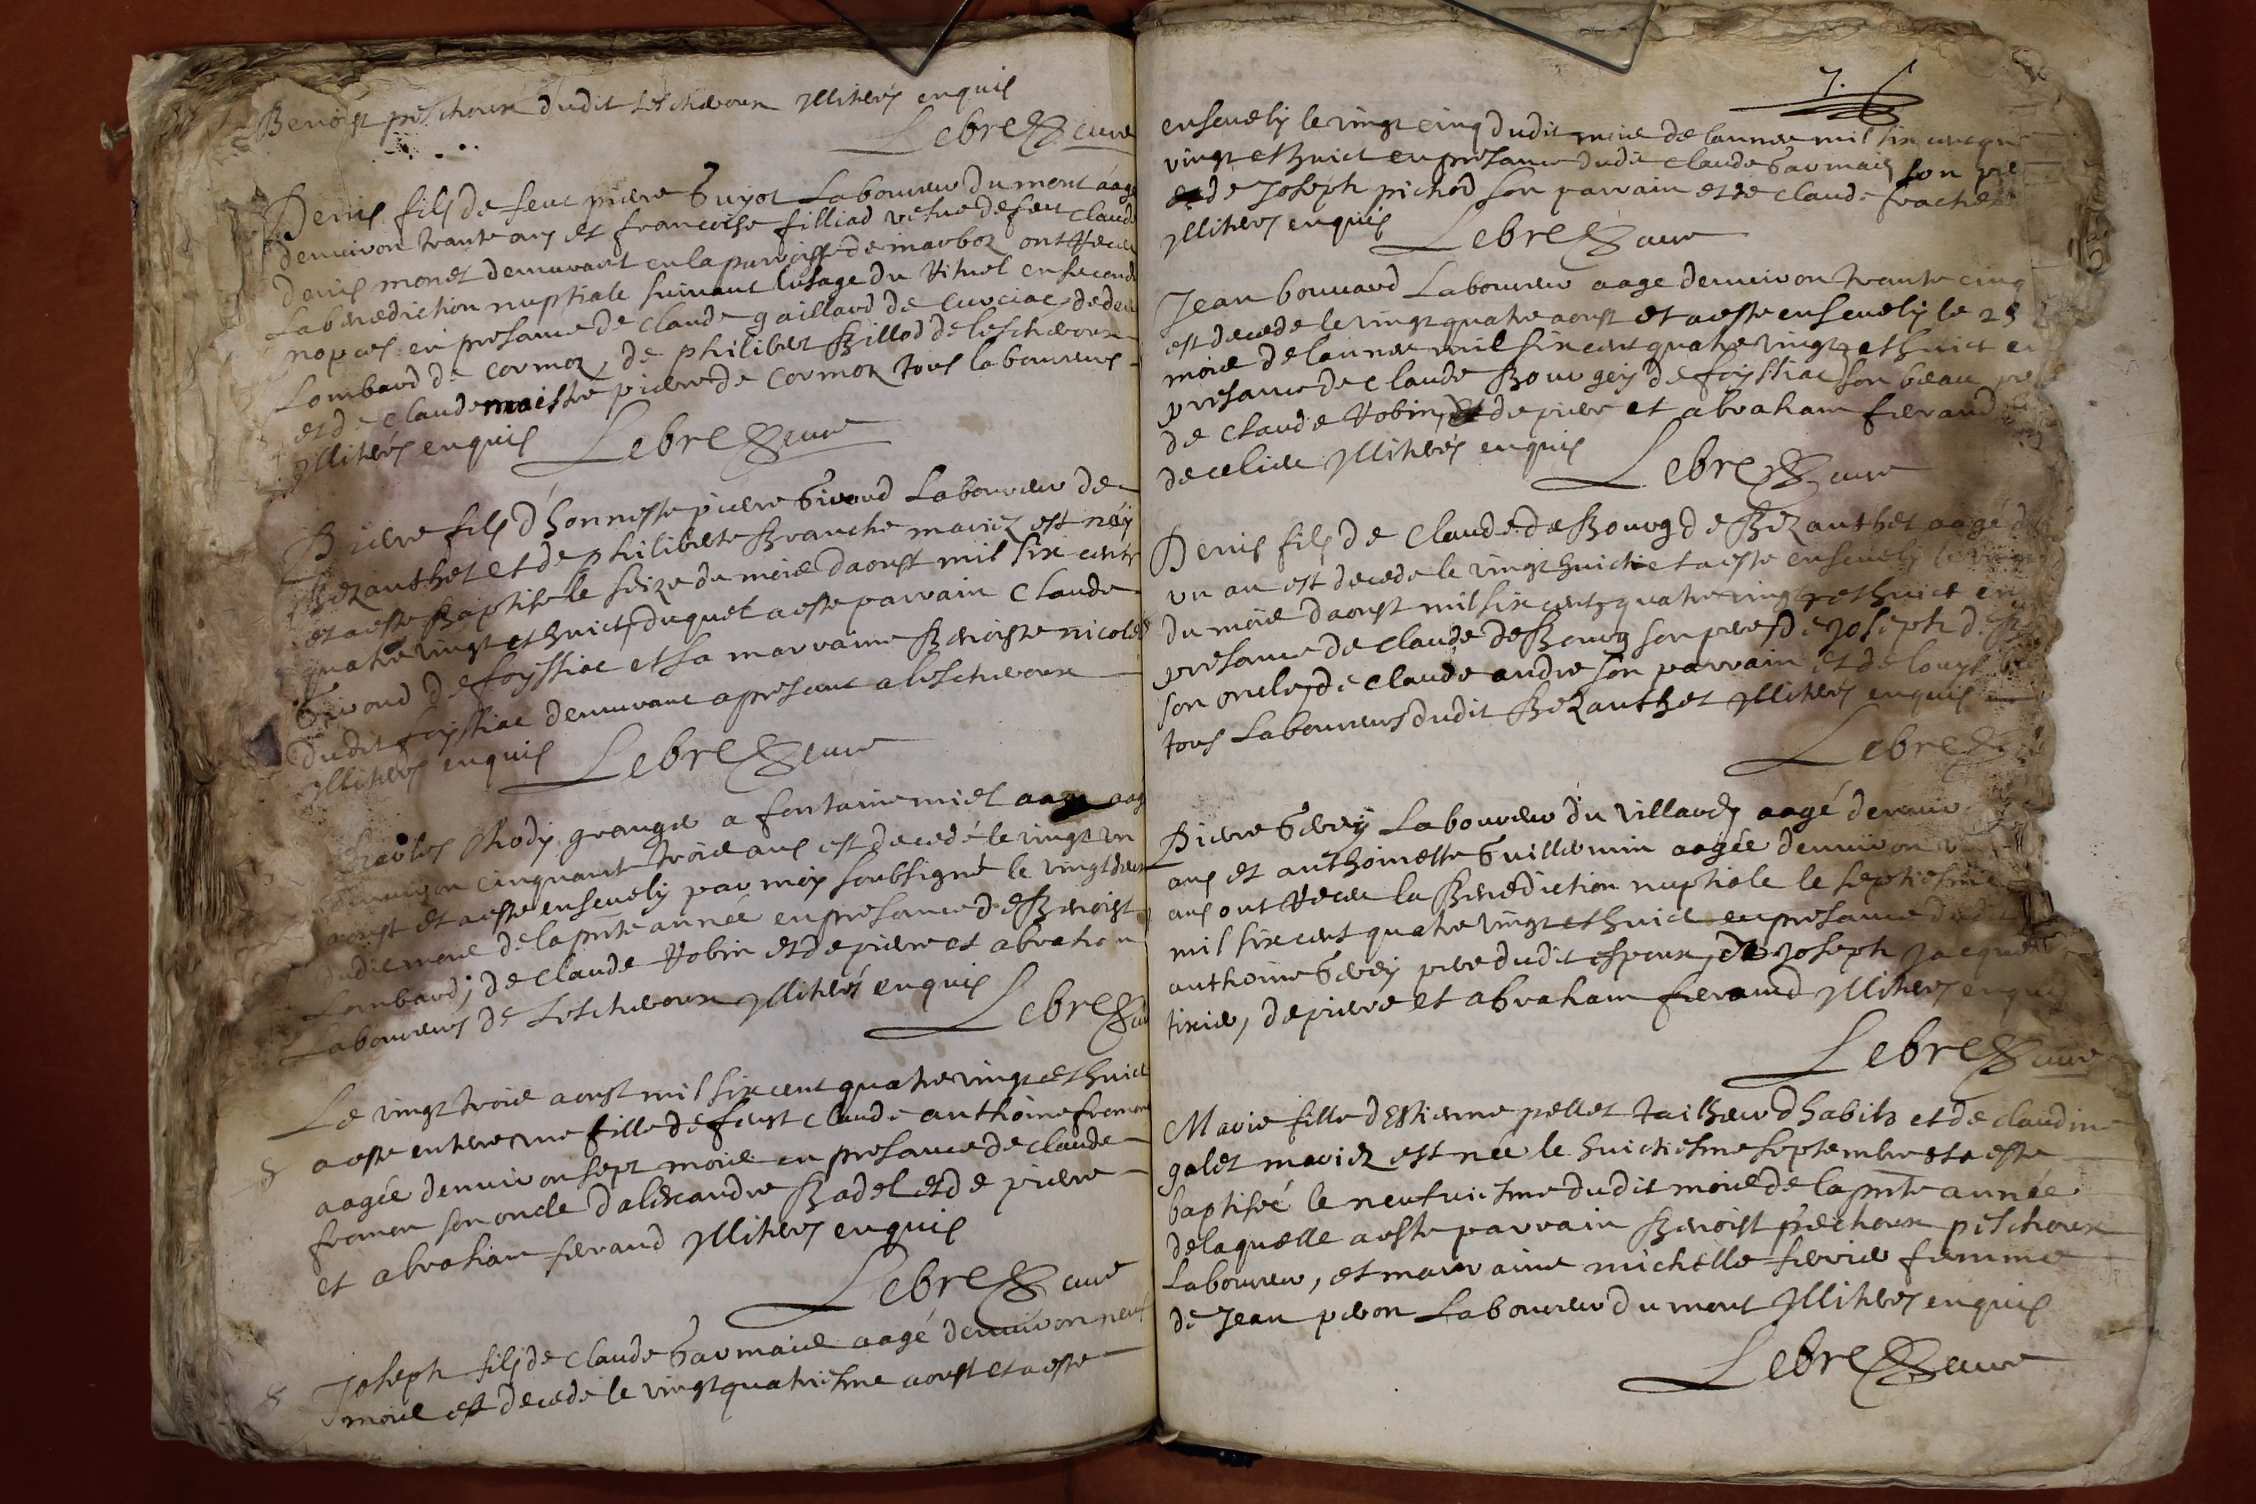 Benoist peschoux dudit Leschdoux illitérés enquis
Lebre cure
Denis fils de feut pierre Guyot Laboureur du mont aagé
denuiron trante ans et francoise filliad vefue de feut claude
denis monet demurant en la parroisse de marboz ont receu
La benediction nuptiale suiuant lusage du Rituel en seconde
nopces en presance de claude gaillard de curciac, de den
Lombard de cormoz, de philibert Billod de leschdoux
et de claude maistre pierre de cormoz tous laboureurs
illitérés enquis Lebre cure
Pierre fils d'honneste pierre Girond Laboureur de
Bezanthet et de philiberte Branche mariez est náy
et aesté Baptisé le seize du mois daoust mil six cents
quatre vingt et huict, duquel aesté parrain claude
Girond de foissiac et sa marraine Benoiste nicole
dudit foissiac demurant apresant a leschdoux
illitérés enquis Lebre cure
Charles Rhody granger a fontaine miel aagé
denuiron cinquante trois ans est decedé le vingt un
aoust et aesté enseuely par moy soubsigné le vingt deux
dudit mois de la pnte année en presance de Benoist
Lombard, de claude Robin et de pierre et abraham
Laboureurs de Leschdoux illitérés enquis
Lebre cure
Le vingt trois aoust mil six cent quatre vingt et huict
8 aesté enterré une fille de feust claude anthoine fromon
aagée denuiron sept mois en presance de claude
fromon son oncle d'alexandre Badel et de pierre
et abraham ferand illitérés enquis
Lebre cure
8 Joseph fils de claude Garmais aagé denuiron neuf
mois est decedé le vingt quatriesme aoust et aesté
7.
enseuely le vingt cinq dudit mois de lannée mil six cent quatre
vingt et huict en presance dudit claude Garmais son pere
et de Joseph pichod son parrain et de claude frachet
illitérés enquis Lebre cure
Jean bouuard Laboureur aagé denuiron trante cinq
est decedé le vingt quatre aoust et aesté enseuely le 25
mois de lannée mil six cent quatre vingt et huict en
presance de claude Bourgeis de foissiac son beau pere
de claude Robin, de pierre et abraham ferand
de ce lieu illitérés enquis
Lebre cure
Denis fils de claude de Bourg de Bezanthet aagé d
un an est decedé le vingt huict et aesté enseuely le vingt
du mois daoust mil six cents quatre vingt et huict en
presance de claude de Bourg son pere, de Joseph de B
son oncle, de claude andre son parrain et de louys
tous Laboureurs dudit Bezanthet illitérés enquis
Lebre
Pierre Gerey Laboureur du villard aagé denuir
ans et anthoinette Guillermin aagée denuiron
ans ont receu la Benediction nuptiale le septiesme
mil six cent quatre vingt et huict en presance dudit
anthoine Gerey pere dudit espoux, de Joseph Jacquet
tixier, de pierre et abraham ferand illitérés enquis
Lebre cure
Marie fille d'Estienne pellet tailheur d'habits et de claudine
galet mariez est née le huictiesme septembre et a esté
baptisée le neufuiesme dudit mois de la pnte année
de laquelle aesté parrain Benoist peschoux peschoux
Laboureur, et marraine michelle ferrier femme
de Jean peron Laboureur du mont illitérés enquis
Lebre cure